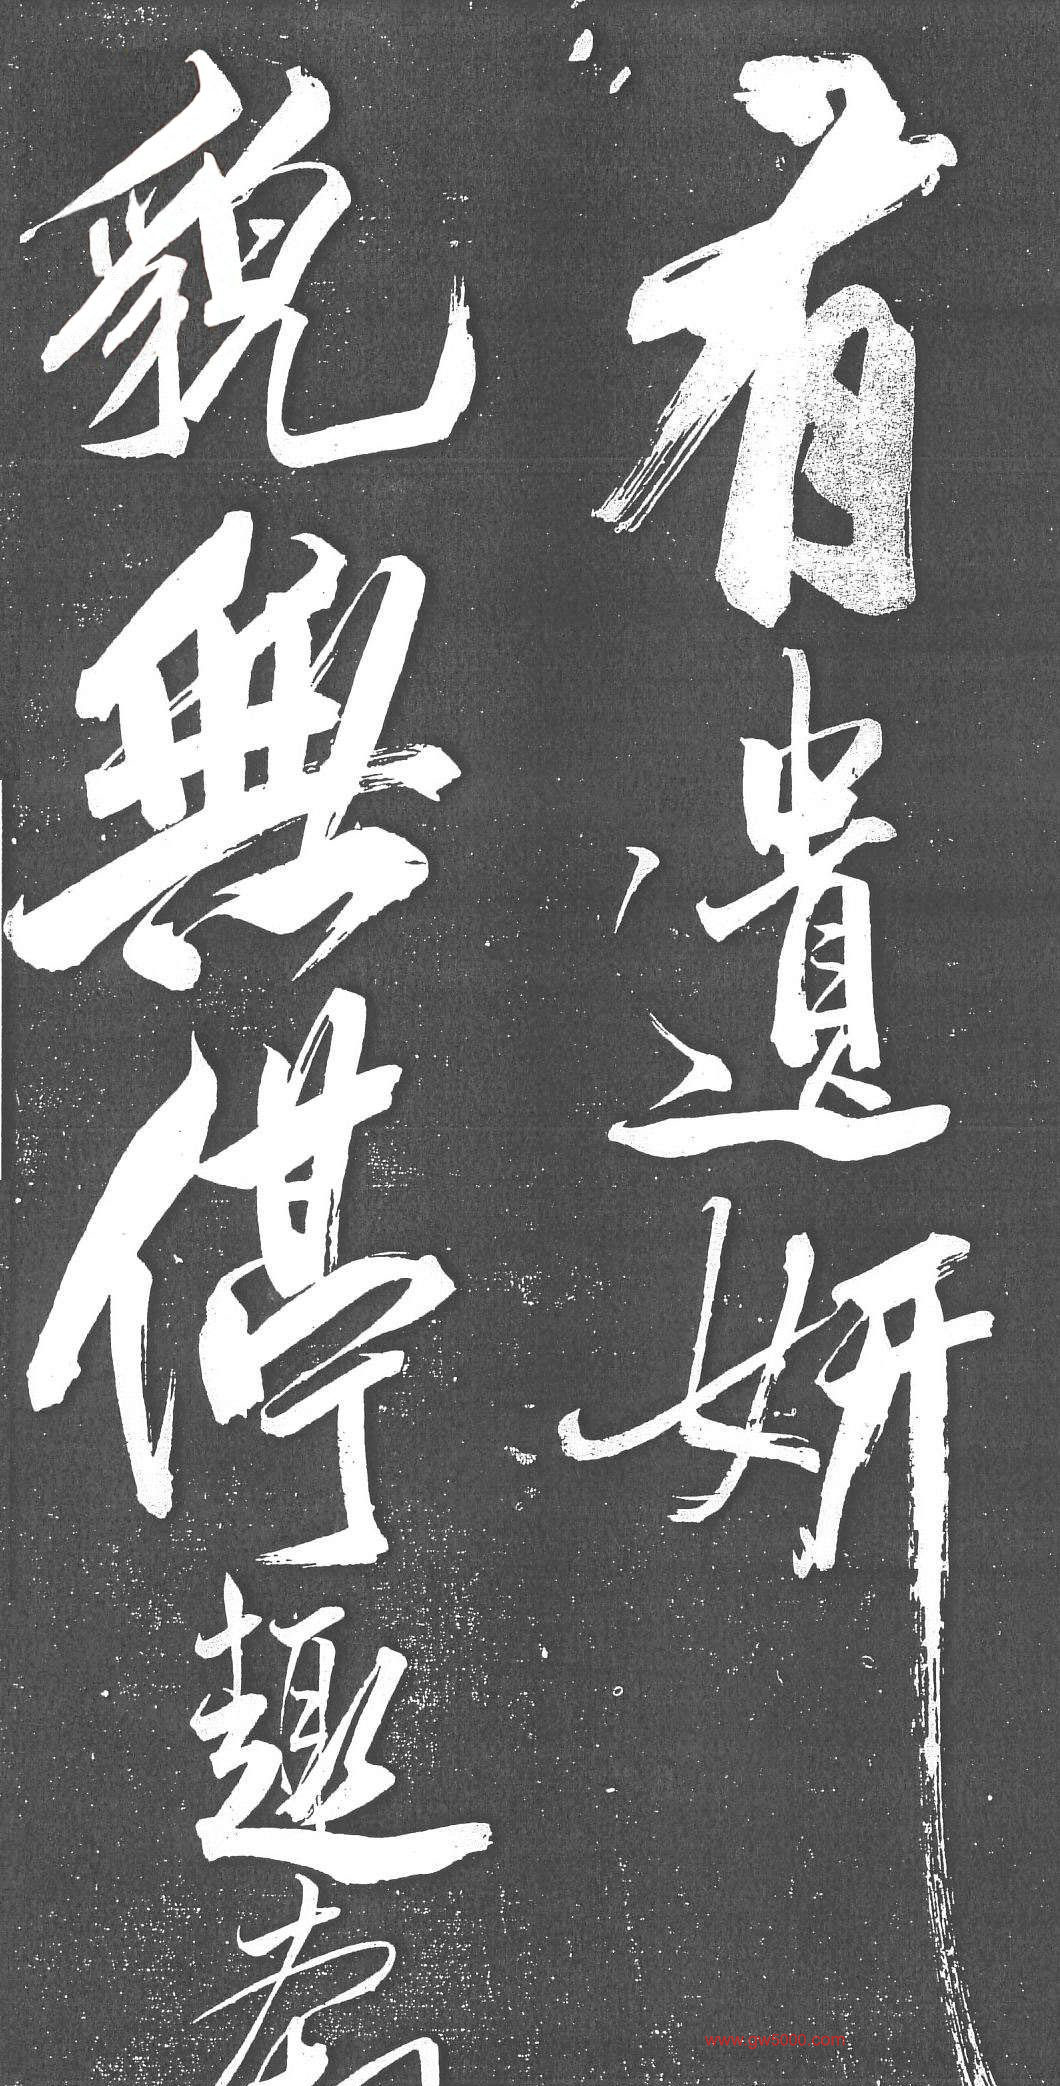 有遺妍
貌無停趣
www.gw6000.com